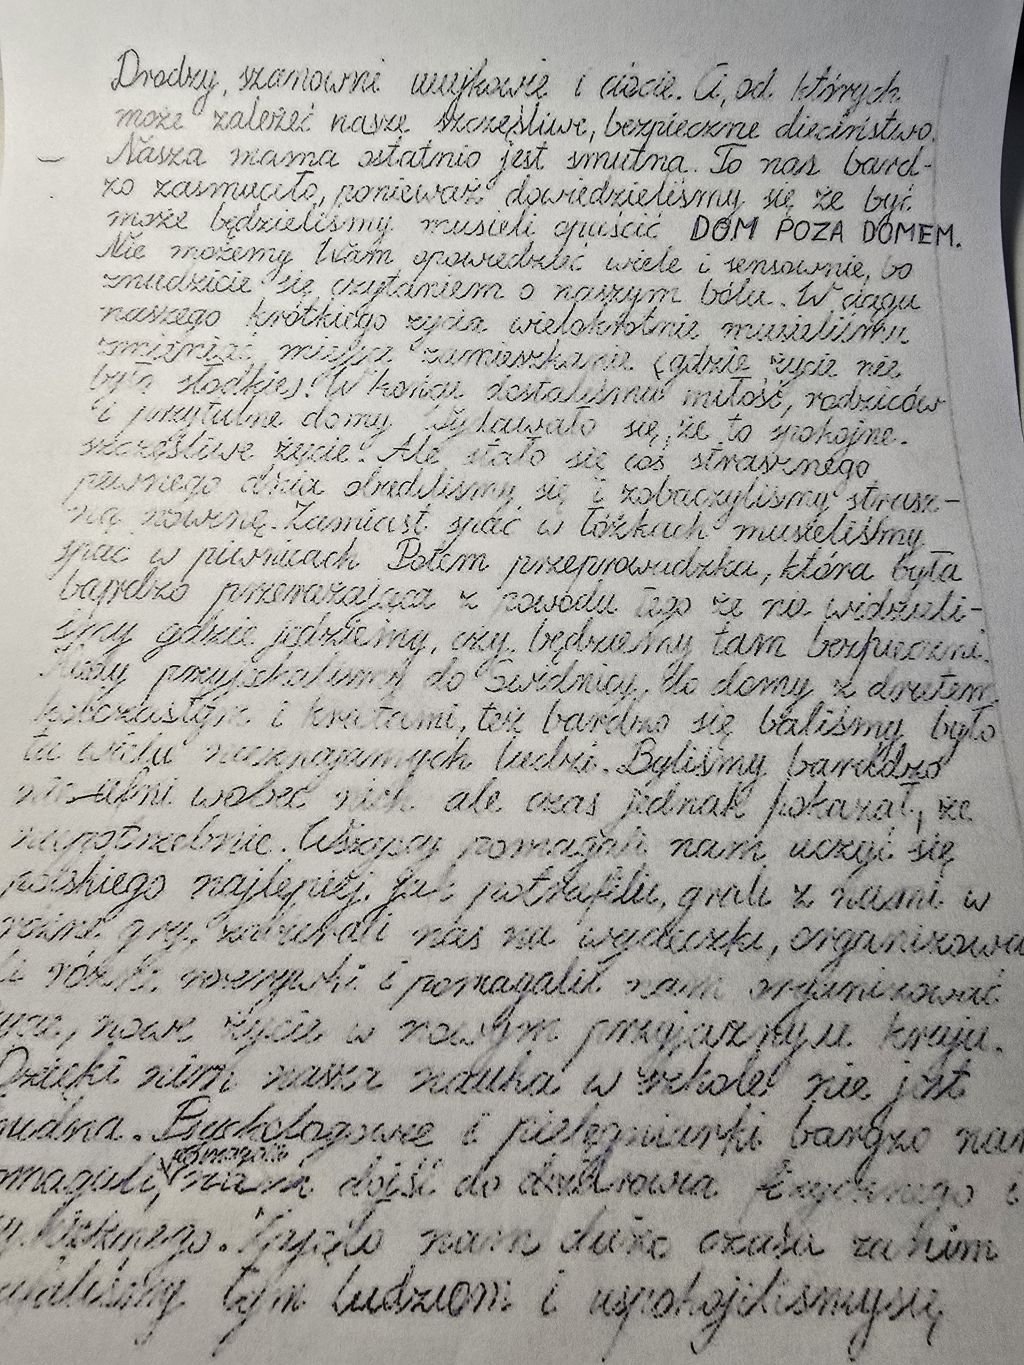 Drodzy, szanowni wujkowie i ciocie. Ci, od których
może zależeć nasze szczęśliwe, bezpieczne dieciństwo.
Nasza mama ostatnio jest smutna. To nas bard-
zo zasmuciło, ponieważ dowiedzieliśmy się że być
może będzieliśmy musieli opuścić DOM POZA DOMEM.
Nie możemy Wam opowiedzieć wiele i sensownie, bo
znudzicie się czytaniem o naszym bólu. W ciągu
naszego krótkiego życia wielokrotnie musieliśmy
zmieniać miejsce zamieszkania (gdzie życie nie
było słodkie). W końcu dostaliśmy miłość, rodziców
i przytulne domy Wydawało się, że to spokojne.
szczęśliwe życie. Ale stało się coś strasznego
pewnego dnia obudiliśmy się i zobaczyliśmy strasz-
ną nowinę. Zamiast spać w łóżkach musieliśmy
spać w piwnicach Potem przeprowadzka, która była
bardzo przerażająca z powodu tego że nie widzieli-
śmy gdzie jedziemy, czy będziemy tam bezpieczni.
Kiedy przyjechaliśmy do Świdnicy, do domy z drutem
kolczastym i kratami, też bardzo się baliśmy było
tu wielu nieznajamych ludzi. Byliśmy barddzo
nie ufni wobec nich ale czas jednak pokazał, że
niepotrzebnie. Wszyscy pomagali nam uczyć się
polskiego najlepiej jak potrafili, grali z nami w
różne gry, zabierali nas na wycieczki, organizowa
li różne rozrywki i pomagali nam organizować
życie, nowe życie w nowym przyjaznym kraju.
Dzięki nim nasza nauka w szkole nie jest
nudna. Psychologowie i pielęgniarki bardzo nam
pomagali, pomagali nam dojść do zdrowia fizycznego i
psychicznego. Zajęło nam dużo czasu zanim
zaufaliśmy tym ludziom i uspokojiliśmysię